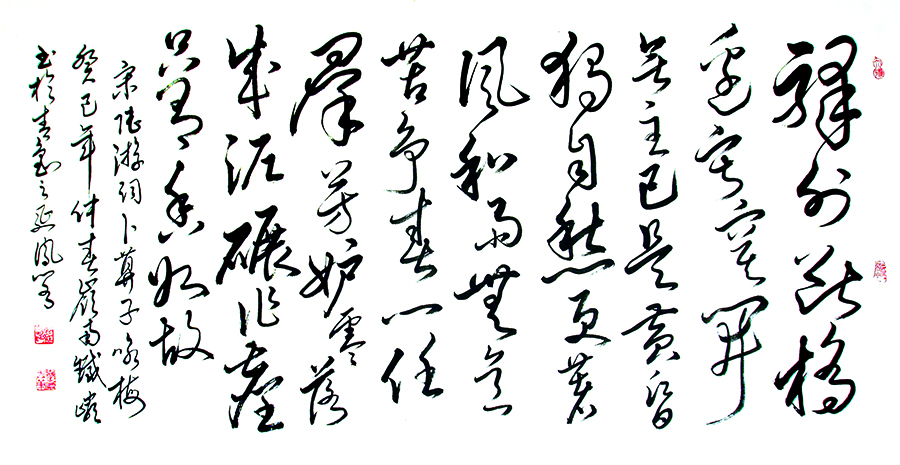 驛外断橋
邊寂寞開
无主已是黄昏
獨自愁更著
風和雨無意
苦争春一任
羣芳妒零落
成泥碾作塵
只有香如故
宋陸游詞卜算子咏梅
癸巳年仲春嶺南
書於青